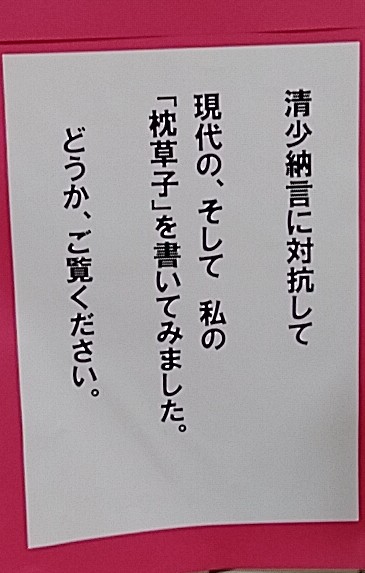 清少納言に対抗して
現代の、そして 私の
「枕草子」を書いてみました。
どうか、ご覧ください。